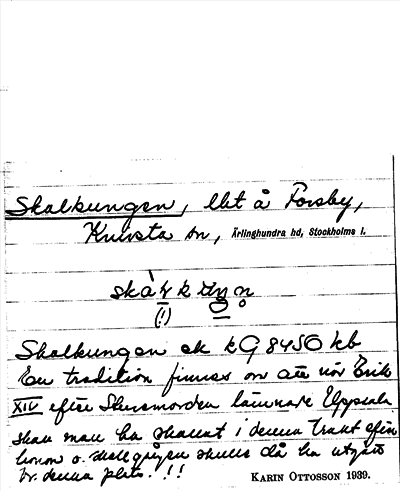 Skalkungen, lht å Forsby,
Knivsta sn, Ärlinghundra hd, Stockholms l.
(!)
Skalkungen ek kb
En tradition finnes om att när Erik
XIV efter Sturemorden lämnade Uppsala
skall man ha skallat i denna trakt efter
honom o. skallgången skulle då ha utgått
fr. denna plats. !!!
KARIN OTTOSSON 1939.